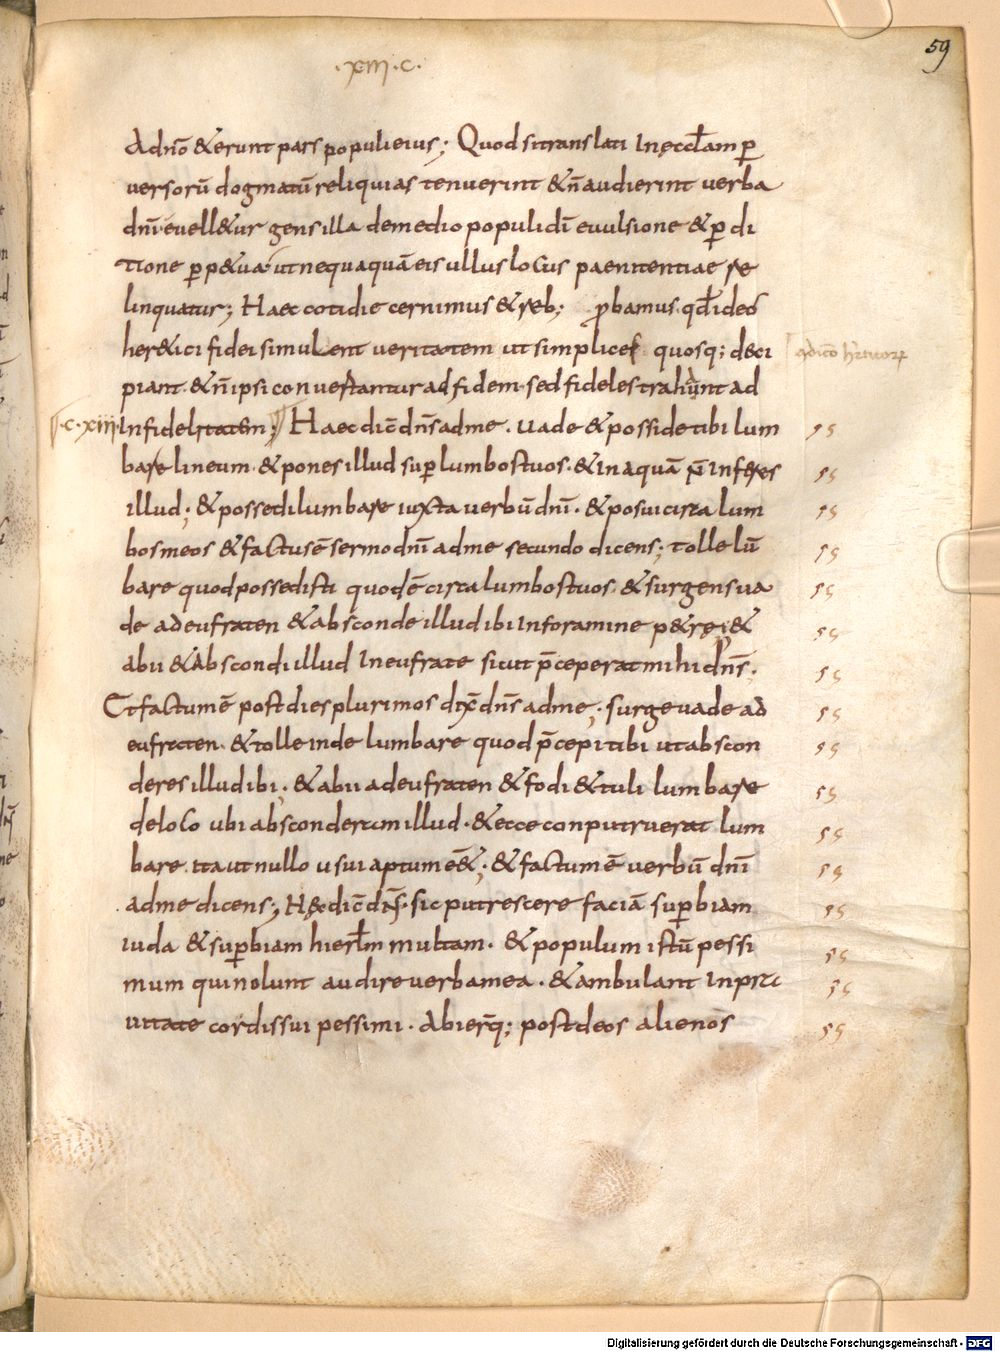 59
·xiii·c·
Ad dño &erunt pars populi eius; Quod si translati in ęccłam ꝑ
versorū dogmatū reliquias tenuerint & ñ audierint verba
dñi· evell&ur gens illa de medio populi dī evulsione & ꝑdi
tione ꝑp&ua· ut nequaquā eis ullus locus paenitentiae re
linquatur; Haec cotidie cernimus & reb; ꝓbamus· qđ ideo
her&ici fidei simulent veritatem ut simplices quosq; deci
piant· & ñ ipsi convertantur ad fidem· sed fideles trahunt ad
·c·xiii· Infidelitatem; Haec dic̄ dñs ad me· vade & posside tibi lum
bare lineum· & pones illud suꝑ lumbos tuos· & in aquā ñ inferes
illud; & possedi lumbare iuxta verbū dñi· & posui circa lum
bos meos & factus ē sermo dñi ad me secundo dicens; tolle lū
bare quod possedisti quod ē circa lumbos tuos· & surgens va
de ad eufraten & absconde illud ibi in foramine p&rę; &
abii & abscondi illud in eufrate sicut p̄ceperat mihi dñs;
Et factum ē post dies plurimos dix̄ dñs ad me; surge vade ad
eufraten· & tolle inde lumbare quod p̄cepi tibi ut abscon
deres illud ibi; & abii ad eufraten & fodi & tuli lumbare
de loco ubi absconderam illud· & ecce conputruerat lum
bare· ita ut nullo usui aptum ēē&; & factum ē verbū dñi
ad me dicens; Hęc dic̄ dñs· sic putrescere faciā suꝑbiam
iuda & suꝑbiam hierłm multam· & populum istū pessi
mum qui nolunt audire verba mea· & ambulant in pra
vitate cordis sui pessimi· Abierq̄; post deos alienos
Digitalisierung gefördert durch die Deutsche Forschungsgemeinschaft - DFG